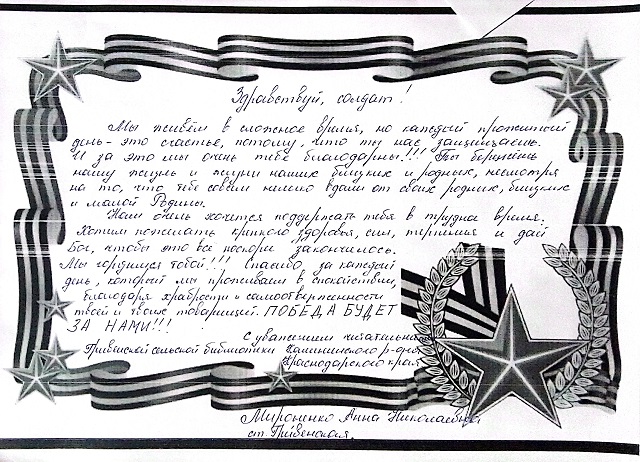 Здравствуй, солдат!
Мы живём в сложное время, но каждый прожитый
день - это счастье, потому, что ты нас защищаешь.
И за это мы очень тебе благодарны!!! Ты борешься
нашу жизнь и жизни наших близких и родных, несмотря
на то, что тебе совсем нелегко вдали от своих родных, близких
и малой Родины.
Нам очень хочется поддержать тебя в трудное время.
Хотим пожелать крепкого здоровья, сил, терпения и дай
Бог, чтобы это все поскорее закончилось.
Мы гордимся тобой!!! Спасибо за каждый
день, который мы проживаем в спокойствии,
благодаря храбрости и самоотверженности
твоей и твоих товарищей. ПОБЕДА БУДЕТ
ЗА НАМИ!!!
С уважением читательница
Гривенской сельской библиотеки Калининского р-она
Краснодарского края
Мироненко Анна Николаевна
ст. Гривенская.